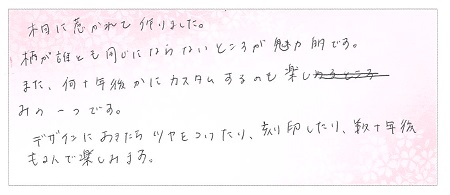 木目に惹かれて作りました。
柄が誰とも同じにならないところが魅力的です。
また、何十年後かにカスタムするのも楽し
みの一つです。
デザインにあきたらツヤをつけたり、刻印したり、数十年後
もるんで楽しみます。